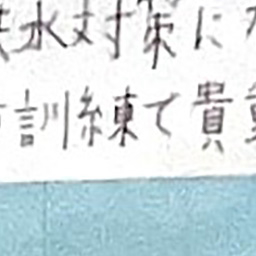 水対策に
訓練て貴